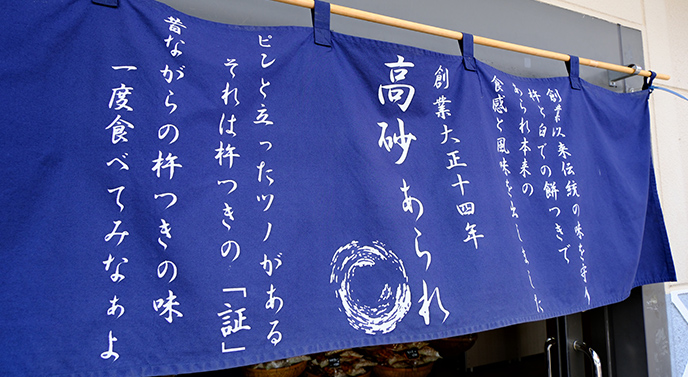 創業以来伝統の味を守り
杵と臼での餅つきで
あられ本来の
食感と風味を出しました
創業大正十四年
高砂あられ
ピンと立ったツノがある
それは杵つきの「証」
昔ながらの杵つきの味
一度食べてみなぁよ